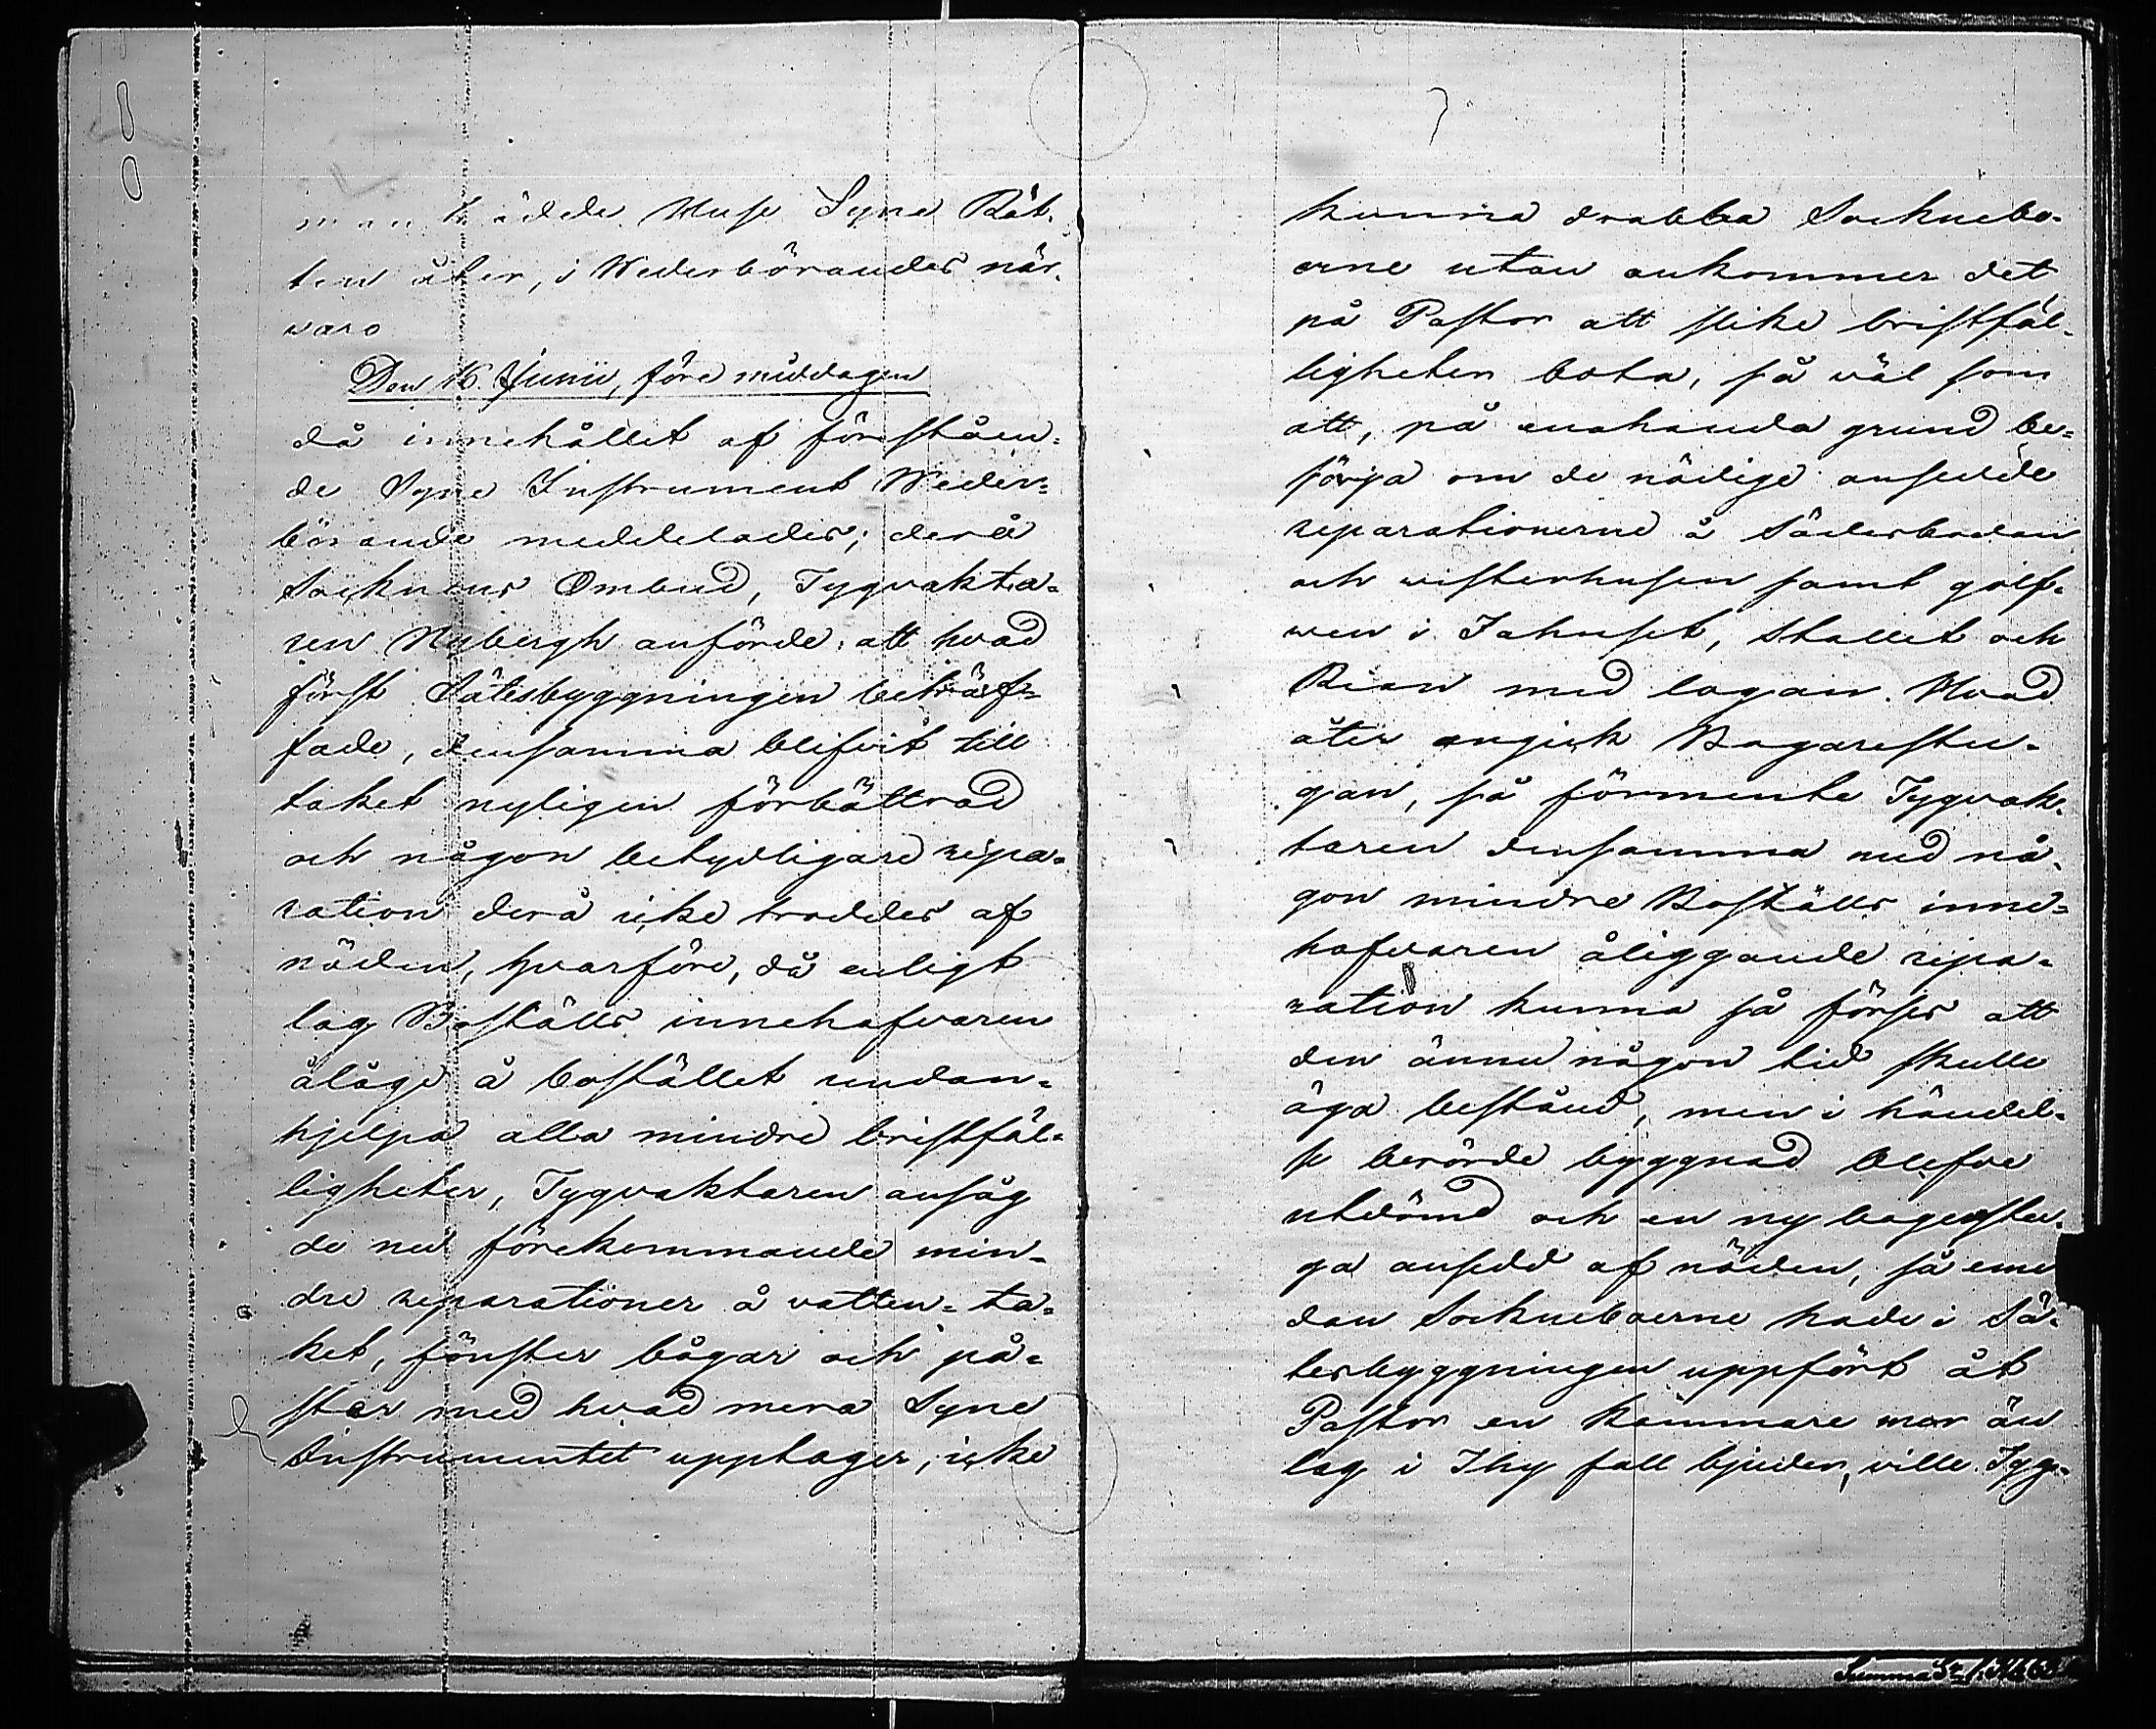 manträdde Huse Syne Rät-
ten åter, i Wederbörandes när-
varo
Den 16. Junii, före middagen
då innehållet af föreståen-
de Syne Instrument Weder-
börande meddelades; derå
Socknens Ombud, Tygvakta-
ren Nybergh anförde: att hvad
först Sätesbyggningen beträf-
fade, densamma blifvit till
taket nyligen förbättrad
och någon betydligare repa-
ration derå icke troddes af
nöden, hvarföre, då enligt
lag Boställs innehafvaren
ålåge å bostället undan-
hjelpa alla mindre bristfäl-
ligheter, Tygvaktaren ansåg
de nu förekommande min-
dre reparationer å vatten-ta-
ket, fönster bågar och på-
ster med hvad mera Syne
Instrumentet upptager, icke
kunna drabba Socknebo-
erne utan ankommer det
på Pastor att slike bristfäl-
ligheter bota, så väl som
att, på enahanda grund be-
sörja om de nödige ansedde
reparationerne å Söderbodan
och visterhusen samt golf-
wen i Fähuset, Stallet och
Rian med logan. Hvad
åter angick Bagarestu-
gan, så förmente Tygvak-
taren densamma med nå-
gon mindre Boställs inne-
hafvaren åliggande repa-
ration kunna så förses att
den ännu någon tid skulle
äga bestånd, men i händel-
se berörde byggnad blefve
utdömd och en ny bagarstu-
ga ansedd af nöden, så eme
dan Sockneboerne hade i Sä-
tesbyggningen uppfört åt
Pastor en kammare mer än
lag i Thy fall bjuder, ville Tyg-